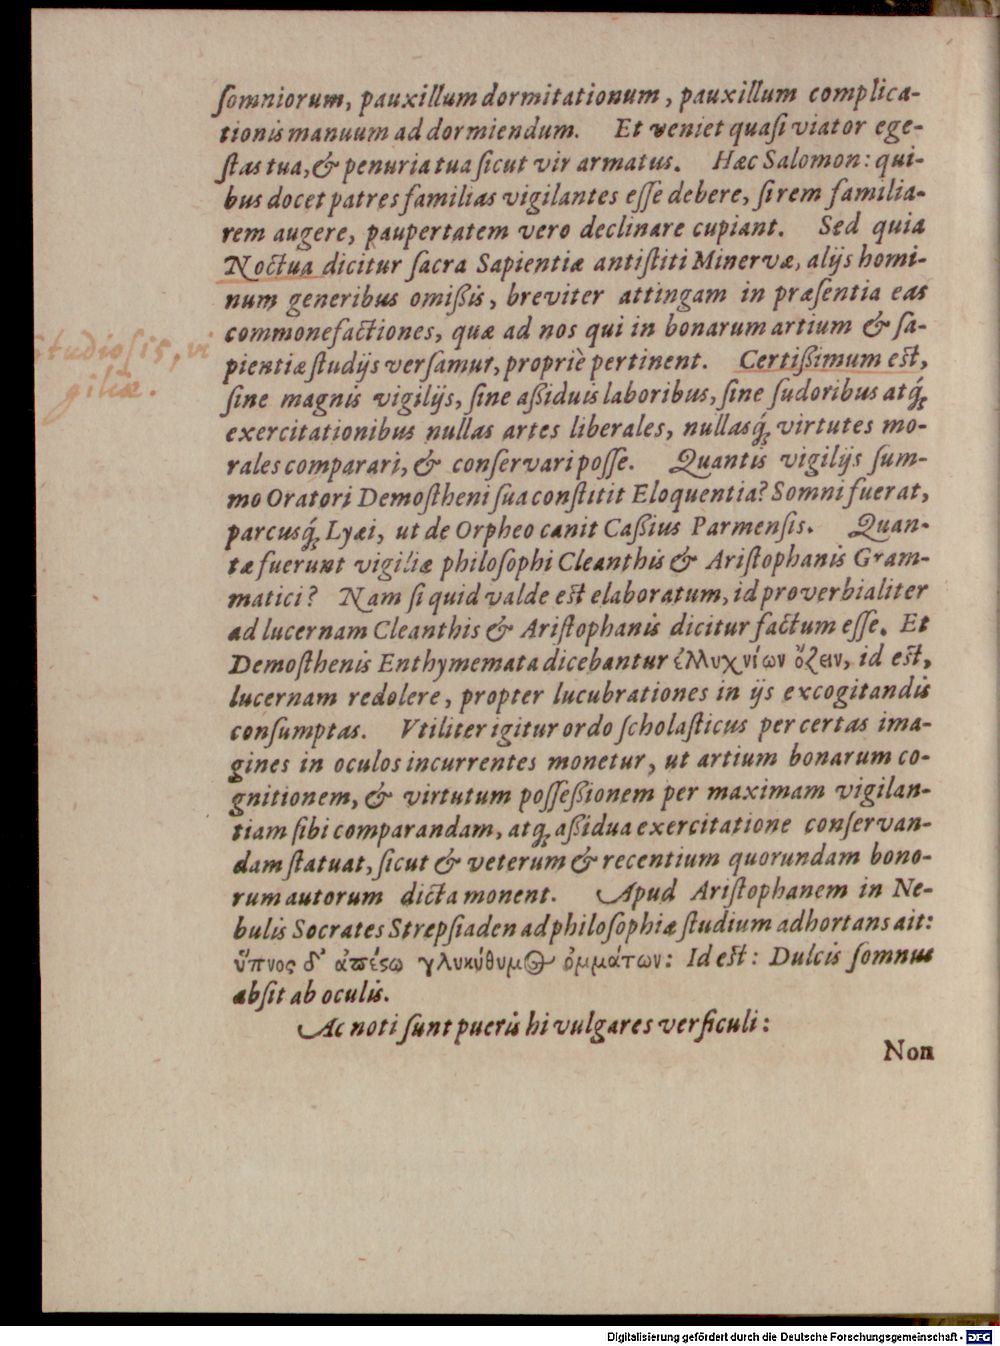 ſomniorum, pauxillum dormitationum, pauxillum complica-
tionis manuum ad dormiendum. Et veniet quaſi viator ege-
ſtas tua, & penuria tua ſicut vir armatus. Hæc Salomon: qui-
bus docet patres familias vigilantes eſſe debere, ſi rem familia-
rem augere, paupertatem vero declinare cupiant. Sed quia
Noctua dicitur ſacra Sapientiæ antiſtiti Minervæ, alijs homi-
num generibus omißis, breviter attingam in præſentia eas
commonefactiones, quæ ad nos qui in bonarum artium & ſa-
pientiæ ſtudijs verſamur, propriè pertinent. Certißimum est,
Studiosis, vi
giliæ.
ſine magnis vigilijs, ſine aßiduis laboribus, ſine ſudoribus atq́;
exercitationibus nullas artes liberales, nullasq́; virtutes mo-
rales comparari, & conſervari poſſe. Quantis vigilijs ſum-
mo Oratori Demoſtheni ſua conſtitit Eloquentia? Somni fuerat,
parcusq́; Lyæi, ut de Orpheo canit Caßius Parmenſis. Quan-
tæ fuerunt vigiliæ philoſophi Cleanthis & Ariſtophanis Gram-
matici? Nam ſi quid valde est elaboratum, id proverbialiter
ad lucernam Cleanthis & Ariſtophanis dicitur factum eſſe. Et
Demoſthenis Enthymemata dicebantur ἐλλυχνίων ὄζειν, id est,
lucernam redolere, propter lucubrationes in ijs excogitandis
conſumptas. Vtiliter igitur ordo ſcholaſticus per certas ima-
gines in oculos incurrentes monetur, ut artium bonarum co-
gnitionem, & virtutum poſſeßionem per maximam vigilan-
tiam ſibi comparandam, atq; aßidua exercitatione conſervan-
dam ſtatuat, ſicut & veterum & recentium quorundam bono-
rum autorum dicta monent. Apud Ariſtophanem in Ne-
bulis Socrates Strepſiaden ad philoſophiæ ſtudium adhortans ait:
ὕπνος δ' ἀπέςω γλυκύθυμος ὀμμάτων: Id est: Dulcis ſomnus
abſit ab oculis.
Ac noti ſunt pueris hi vulgares verſiculi:
Non
Digitalisierung gefördert durch die Deutsche Forschungsgemeinschaft - DFG